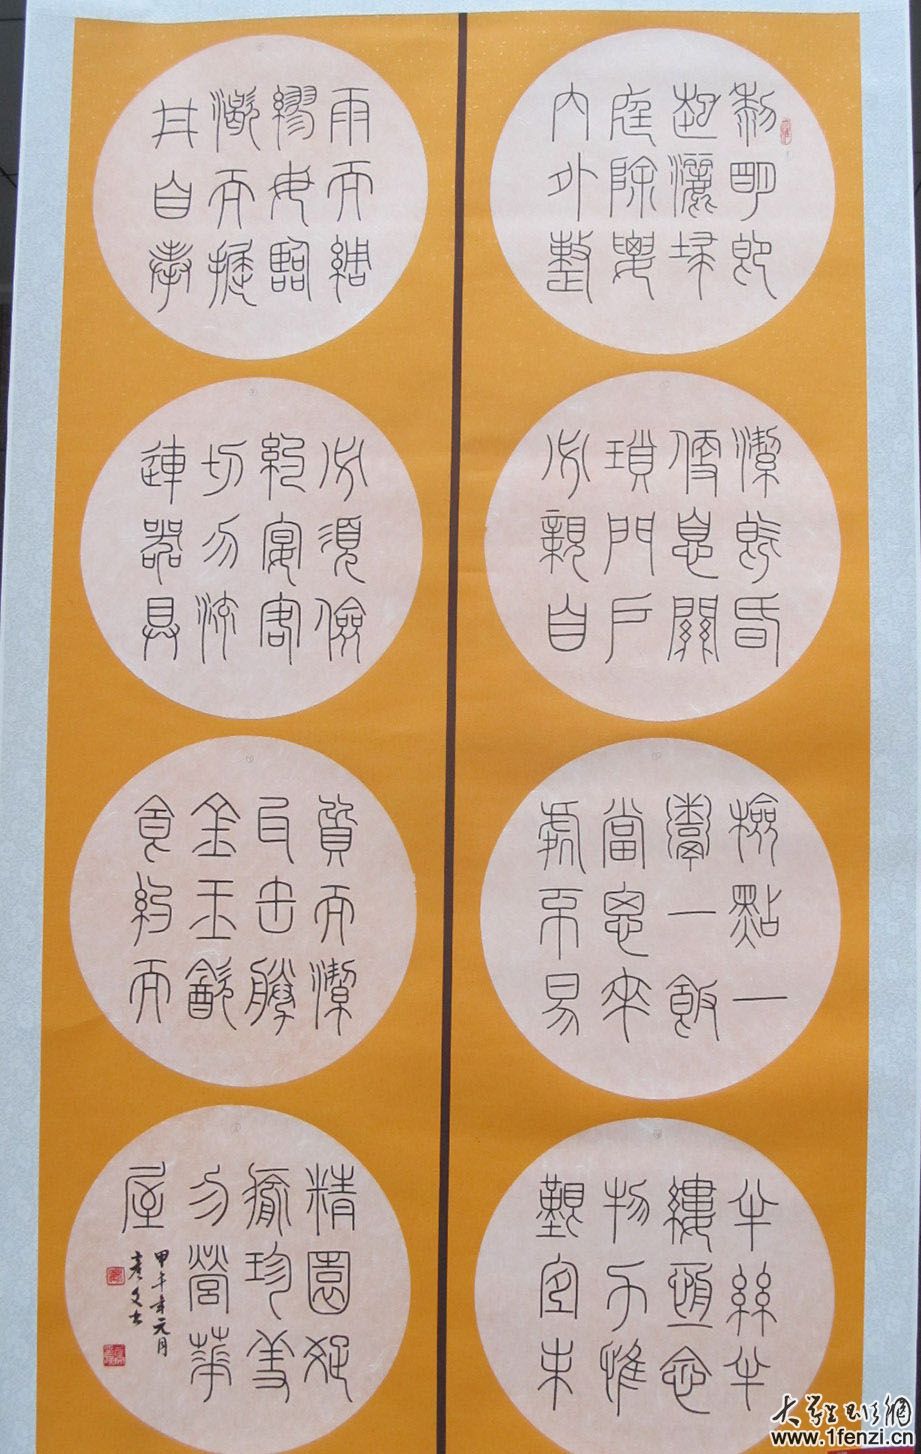 黎明即
起灑埽
庭除要
內外整
潔既昏
便息關
瑣門戶
必親自
檢點一
粥一飯
當思來
處不易
半絲半
縷恆念
物力惟
艱宜未
雨而綢
繆毋臨
渴而掘
井自奉
必須儉
約宴客
切勿流
連器具
質而潔
瓦缶勝
金玉飲
食約而
精園蔬
愈珍羞
勿營華
屋
甲午年元月
彥文書
www.1fenzi.cn